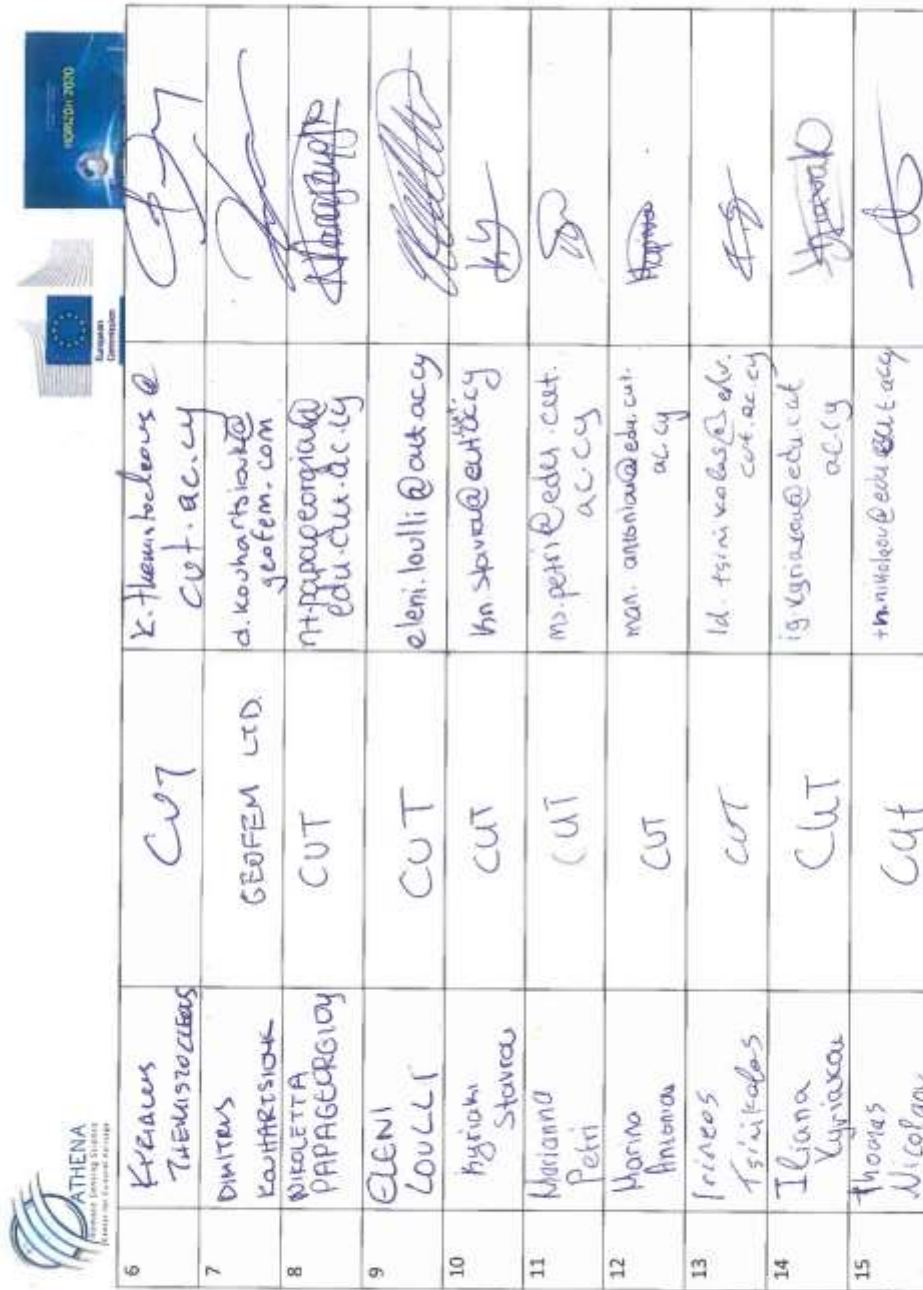 ATHENA
Remote Sensing Science
Center for Cultural Heritage
European
Commission
HORIZON 2020
6
Kyriacos
Themistocleous
CUT
k.themistocleous@
cut.ac.cy
7
DIMITRIS
KOUHARTSIOUK
GEOFEM LTD.
d.kouhartsiouk@
geofem.com
8
NIKOLETTA
PAPAGEORGIOU
CUT
nt.papageorgiou@
edu.cut.ac.cy
9
ELENI
LOULLI
CUT
eleni.loulli@cut.ac.cy
10
Kyriaki
Stavrou
CUT
kn.stavrou@cut.ac.cy
11
Marianna
Petri
CUT
ms.petri@edu.cut.
ac.cy
12
Marina
Antoniou
CUT
man.antoniou@edu.cut.
ac.cy
13
Irineos
Tsinikolas
CUT
ld.tsinikolas@edu.
cut.ac.cy
14
Iliana
Kyriakou
CUT
ig.kyriakou@edu.cut
ac.cy
15
Thomas
Nicolaou
CUT